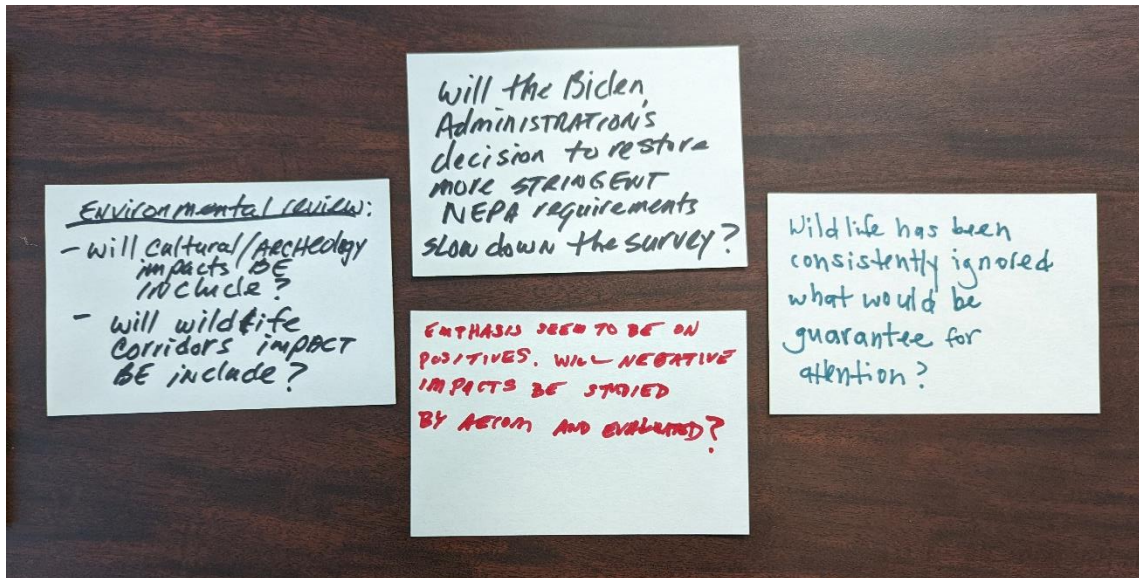 Environmental review:
- will cultural/ARCHEOLOGY
impacts BE
INCLUDE?
- will wildlife
corridors impact
BE include?
will the Biden
Administration's
decision to restore
more STRINGENT
NEPA requirements
slow down the survey?
EMPHASIS SEEM TO BE ON
POSITIVES. WILL NEGATIVE
IMPACTS BE STUDIED
BY AECOM AND EVALUATED?
Wildlife has been
consistently ignored
what would be
guarantee for
attention?